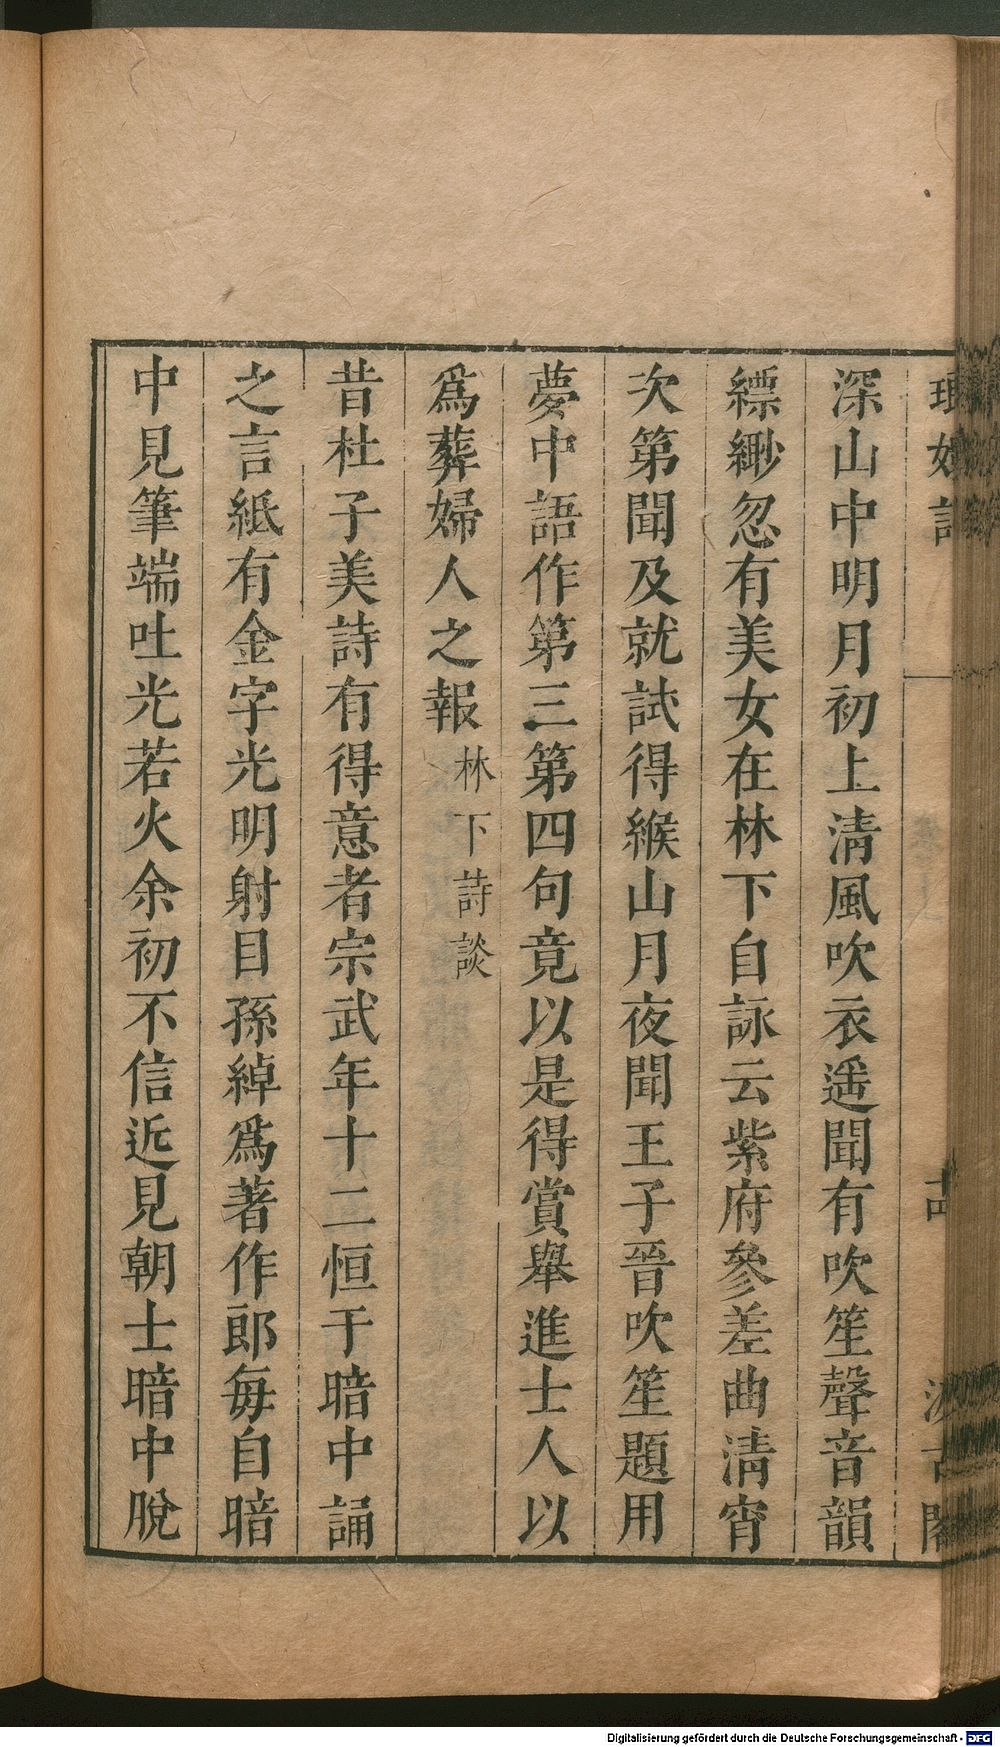 深山中明月初上淸風吹衣遥聞有吹笙聲音韻
縹緲忽有美女在林下自詠云紫府參差曲淸宵
次第聞及就試得緱山月夜聞王子晉吹笙題用
夢中語作第三第四句竟以是得賞舉進士人以
爲葬婦人之報林下詩談
昔杜子美詩有得意者宗武年十二恒于暗中誦
之言紙有金字光明射目孫綽爲著作郎毎自暗
中見筆端吐光若火余初不信近見朝士暗中脫
Digitalisierung gefördert durch die Deutsche Forschungsgemeinschaft - DFG